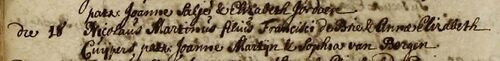 patr: Joanne Salps & Elizabeth Jordoen
Die 18 Nicolaus Martinus filius Francisci de Brie & Anna Elisabeth
Cuypers, patr: Joanne Martijn & Sophia van Bergen